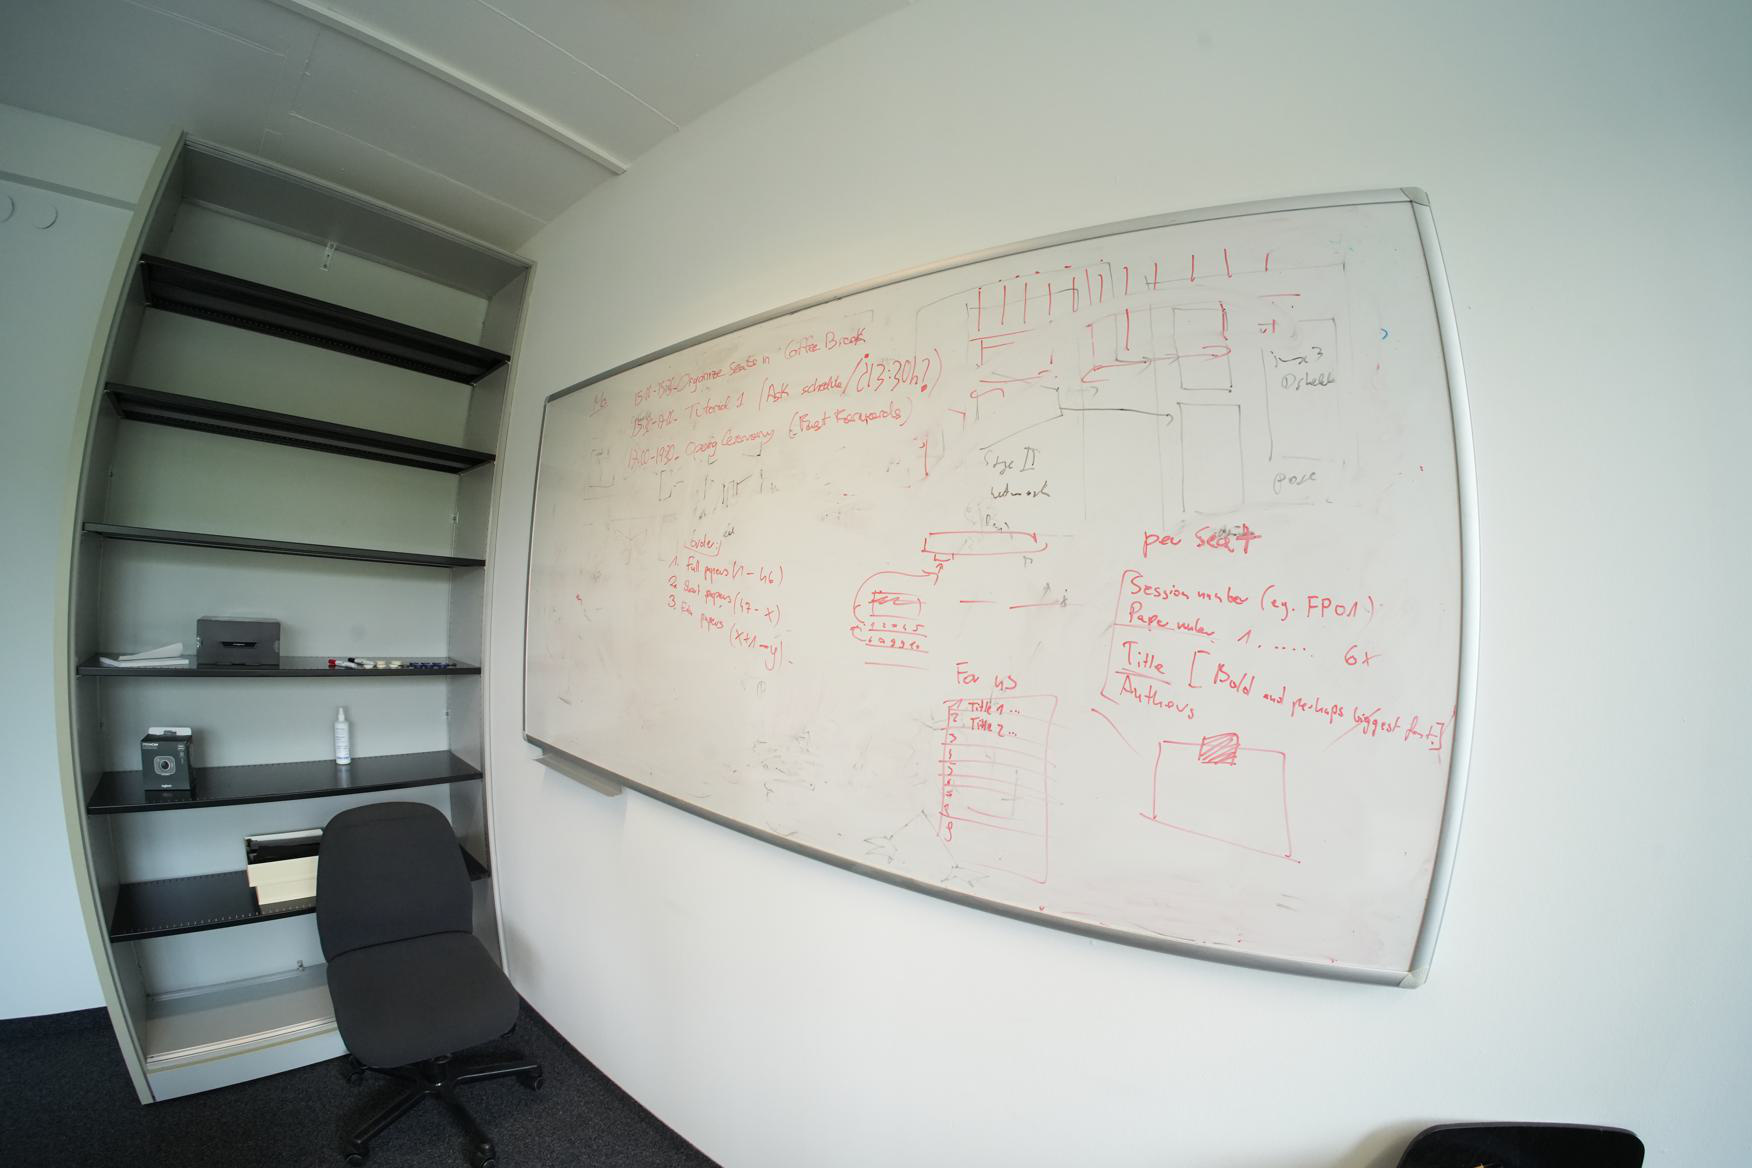 Mo.
Organize Seats in Coffee Break
Tutorial 1 (Ask schedule / (¿13:30h?)
17:00-19:30 Opening Ceremony (Best Forwards)
Order:
1. Full papers (1 - 46)
2. Short papers (47 - x)
3. papers (x+1 - y)
Stage II
network
pose
per Seat
Session number (eg. FP01)
Paper number 1. ..... 6x
Title [Bold and perhaps biggest font!]
Authors
1 2 3 4 5
6 7 8 9 10
For us
1 Title 1 ...
2 Title 2 ...
3
4
5
6
7
8
9